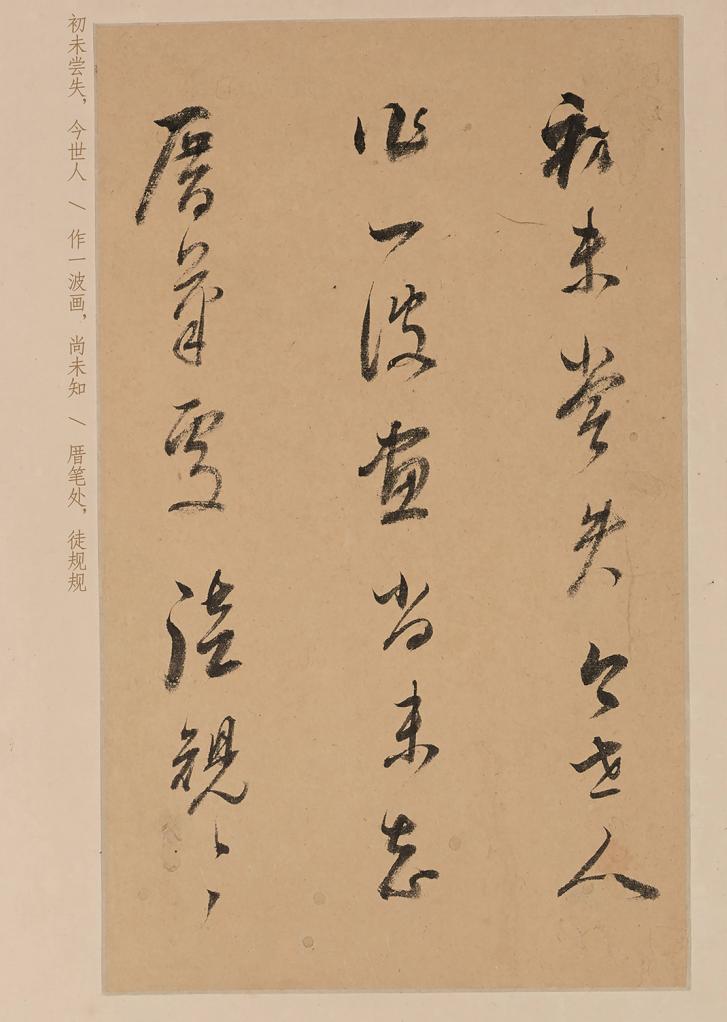 初未嘗失今世人
作一波畫尚未知
厝筆處徒規〻
初未尝失，今世人 \ 作一波画，尚未知 \ 厝笔处，徒规规